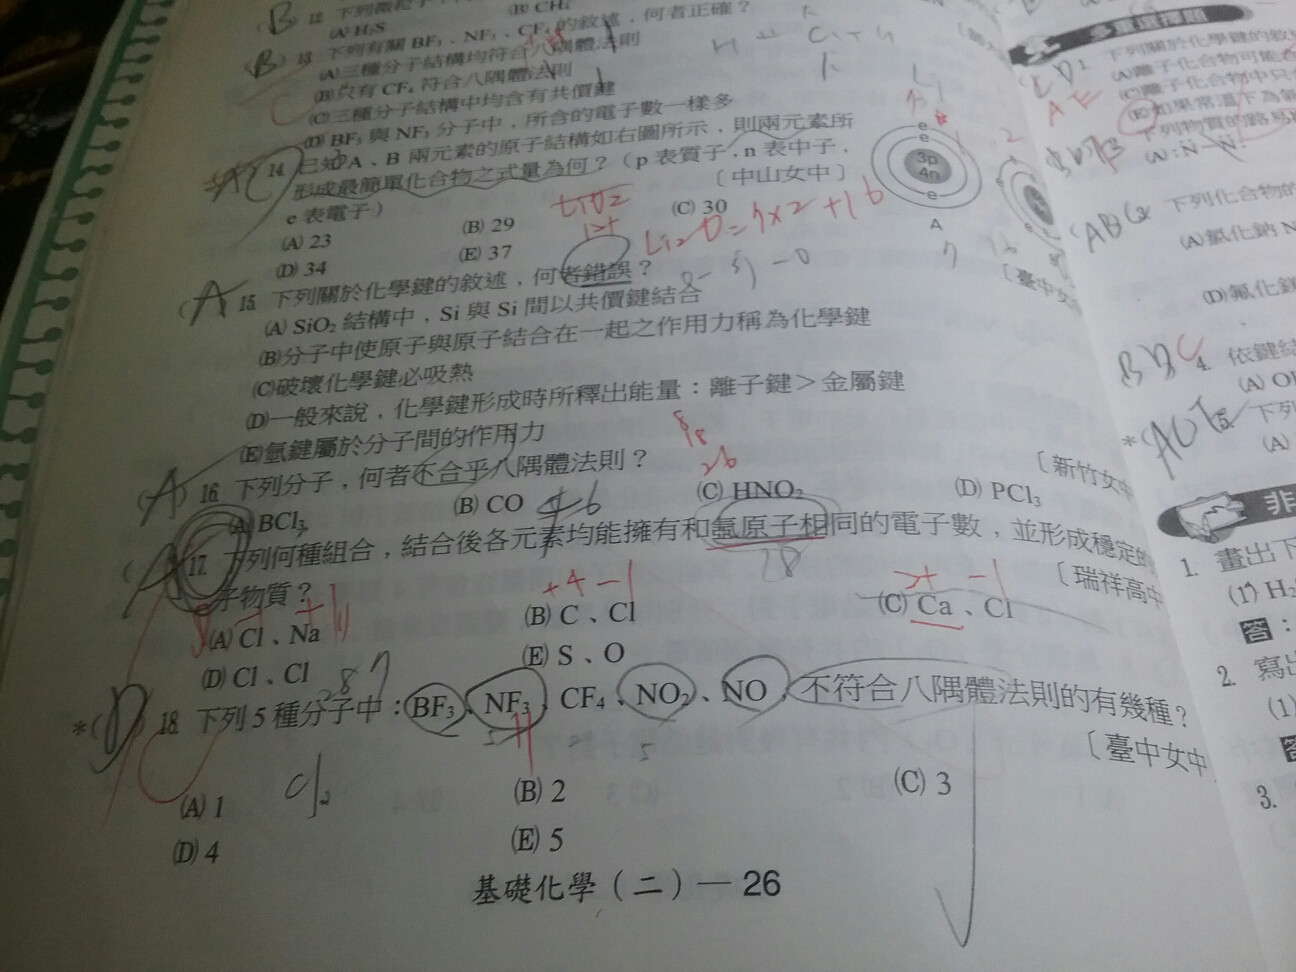 (B) 12. 下列微粒
(A) H₂S (B) CH₄
(B) 13. 下列有關 BF₃、NF₃、CF₄ 的敘述，何者正確？
(A)三種分子結構均符合八隅體法則
(B)只有 CF₄ 符合八隅體法則
(C)三種分子結構中均含有共價鍵
(D) BF₃ 與 NF₃ 分子中，所含的電子數一樣多
14. 已知 A、B 兩元素的原子結構如右圖所示，則兩元素所
形成最簡單化合物之式量為何？（p 表質子，n 表中子，
e 表電子） 〔中山女中〕
(A) 23 (B) 29 (C) 30
(D) 34 (E) 37
e
e
3p
4n
e
A
Li₂O=7×2+16
(A) 15. 下列關於化學鍵的敘述，何者錯誤？ 〔臺中女
(A) SiO₂ 結構中，Si 與 Si 間以共價鍵結合
(B)分子中使原子與原子結合在一起之作用力稱為化學鍵
(C)破壞化學鍵必吸熱
(D)一般來說，化學鍵形成時所釋出能量：離子鍵＞金屬鍵
(E)氫鍵屬於分子間的作用力
(A) 16. 下列分子，何者不合乎八隅體法則？ 〔新竹女中
(A) BCl₃ (B) CO (C) HNO₂ (D) PCl₃
(A) 17. 下列何種組合，結合後各元素均能擁有和氬原子相同的電子數，並形成穩定的
子物質？ 〔瑞祥高中
(A) Cl、Na (B) C、Cl (C) Ca、Cl
(D) Cl、Cl (E) S、O
+4 -1
*(D) 18. 下列 5 種分子中：BF₃、NF₃、CF₄、NO₂、NO，不符合八隅體法則的有幾種？
〔臺中女中
(A) 1 (B) 2 (C) 3
(D) 4 (E) 5
基礎化學（二）— 26
多重選擇題
1. 下列關於化學鍵的敘
(A)離子化合物可能
(C)離子化合物中只
(E)如果常溫下為氣
下列物質的路易
下列化合物的
(A)氯化鈉 N
(D)氟化
4. 依鍵結
(A) O
下列
(A)
非
1. 畫出下
(1) H₂
答：
2. 寫出
(1)
3.